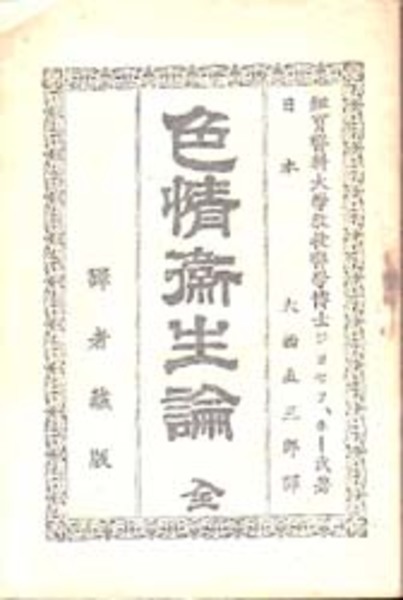 紐育醫科大學教授醫學博士ジヨセフ、ホー氏著
日本 大 三郎譯
色情衞生論 全
譯者藏版